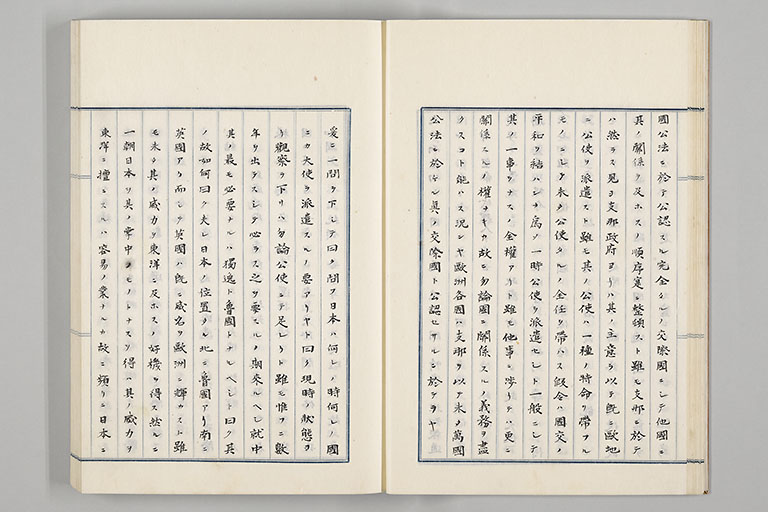 國公法ニ於テ公認スル完全ナルノ交際國ニシテ他國ニ
其ノ關係ヲ及ホスノ順序寔ニ整頓スト雖モ支那ニ於テ
ハ然ラス現ニ支那政府ヨリハ其ノ主意ヲ以テ既ニ歐地
ニ公使ヲ派遣スト雖モ其ノ公使ハ一種ノ特命ヲ帶フル
モノニシテ未タ公使タルノ全任ヲ帶ハス假令ハ國交ノ
平和ヲ結ハンカ爲メ一時公使ヲ派遣セシト一般ニシテ
其ノ一事ヲナスノ全權アリト雖モ他事ニ涉リテハ更ニ
關係スルノ權ナキカ故ニ勿論國ニ關係スルノ義務ヲ盡
クスコト能ハス況ンヤ歐洲各國ハ支那ヲ以テ未タ萬國
公法ニ於ケル眞ノ交際國ト公認セサルニ於テヲヤ
爰ニ一問ヲ下シテ曰ク問フ日本ハ何レノ時何レノ國
ニカ大使ヲ派遣スルノ要アリヤト曰ク現時ノ狀態ヲ
觀察ヲ下リハ勿論公使ニテ足レリト雖モ惟フニ數
年ヲ出テスシテ必ラス之ヲ要スルノ期來ルヘシ就中
其ノ最モ必要ナルハ獨逸ト魯國トナルヘシト曰ク其
ノ故如何曰ク夫レ日本ノ位置タル北ニ魯國アリ南ニ
英國アリ而シテ英國ハ既ニ威名ヲ歐洲ニ輝カスト雖
モ未タ其ノ威力ヲ東洋ニ及ホスノ好機ヲ得ス然ルニ
一朝日本ヲ其ノ掌中ノモノトナスヲ得ハ其ノ威力ヲ
東洋ニ擅ニスルハ容易ノ業ナルカ故ニ頻リニ日本ニ